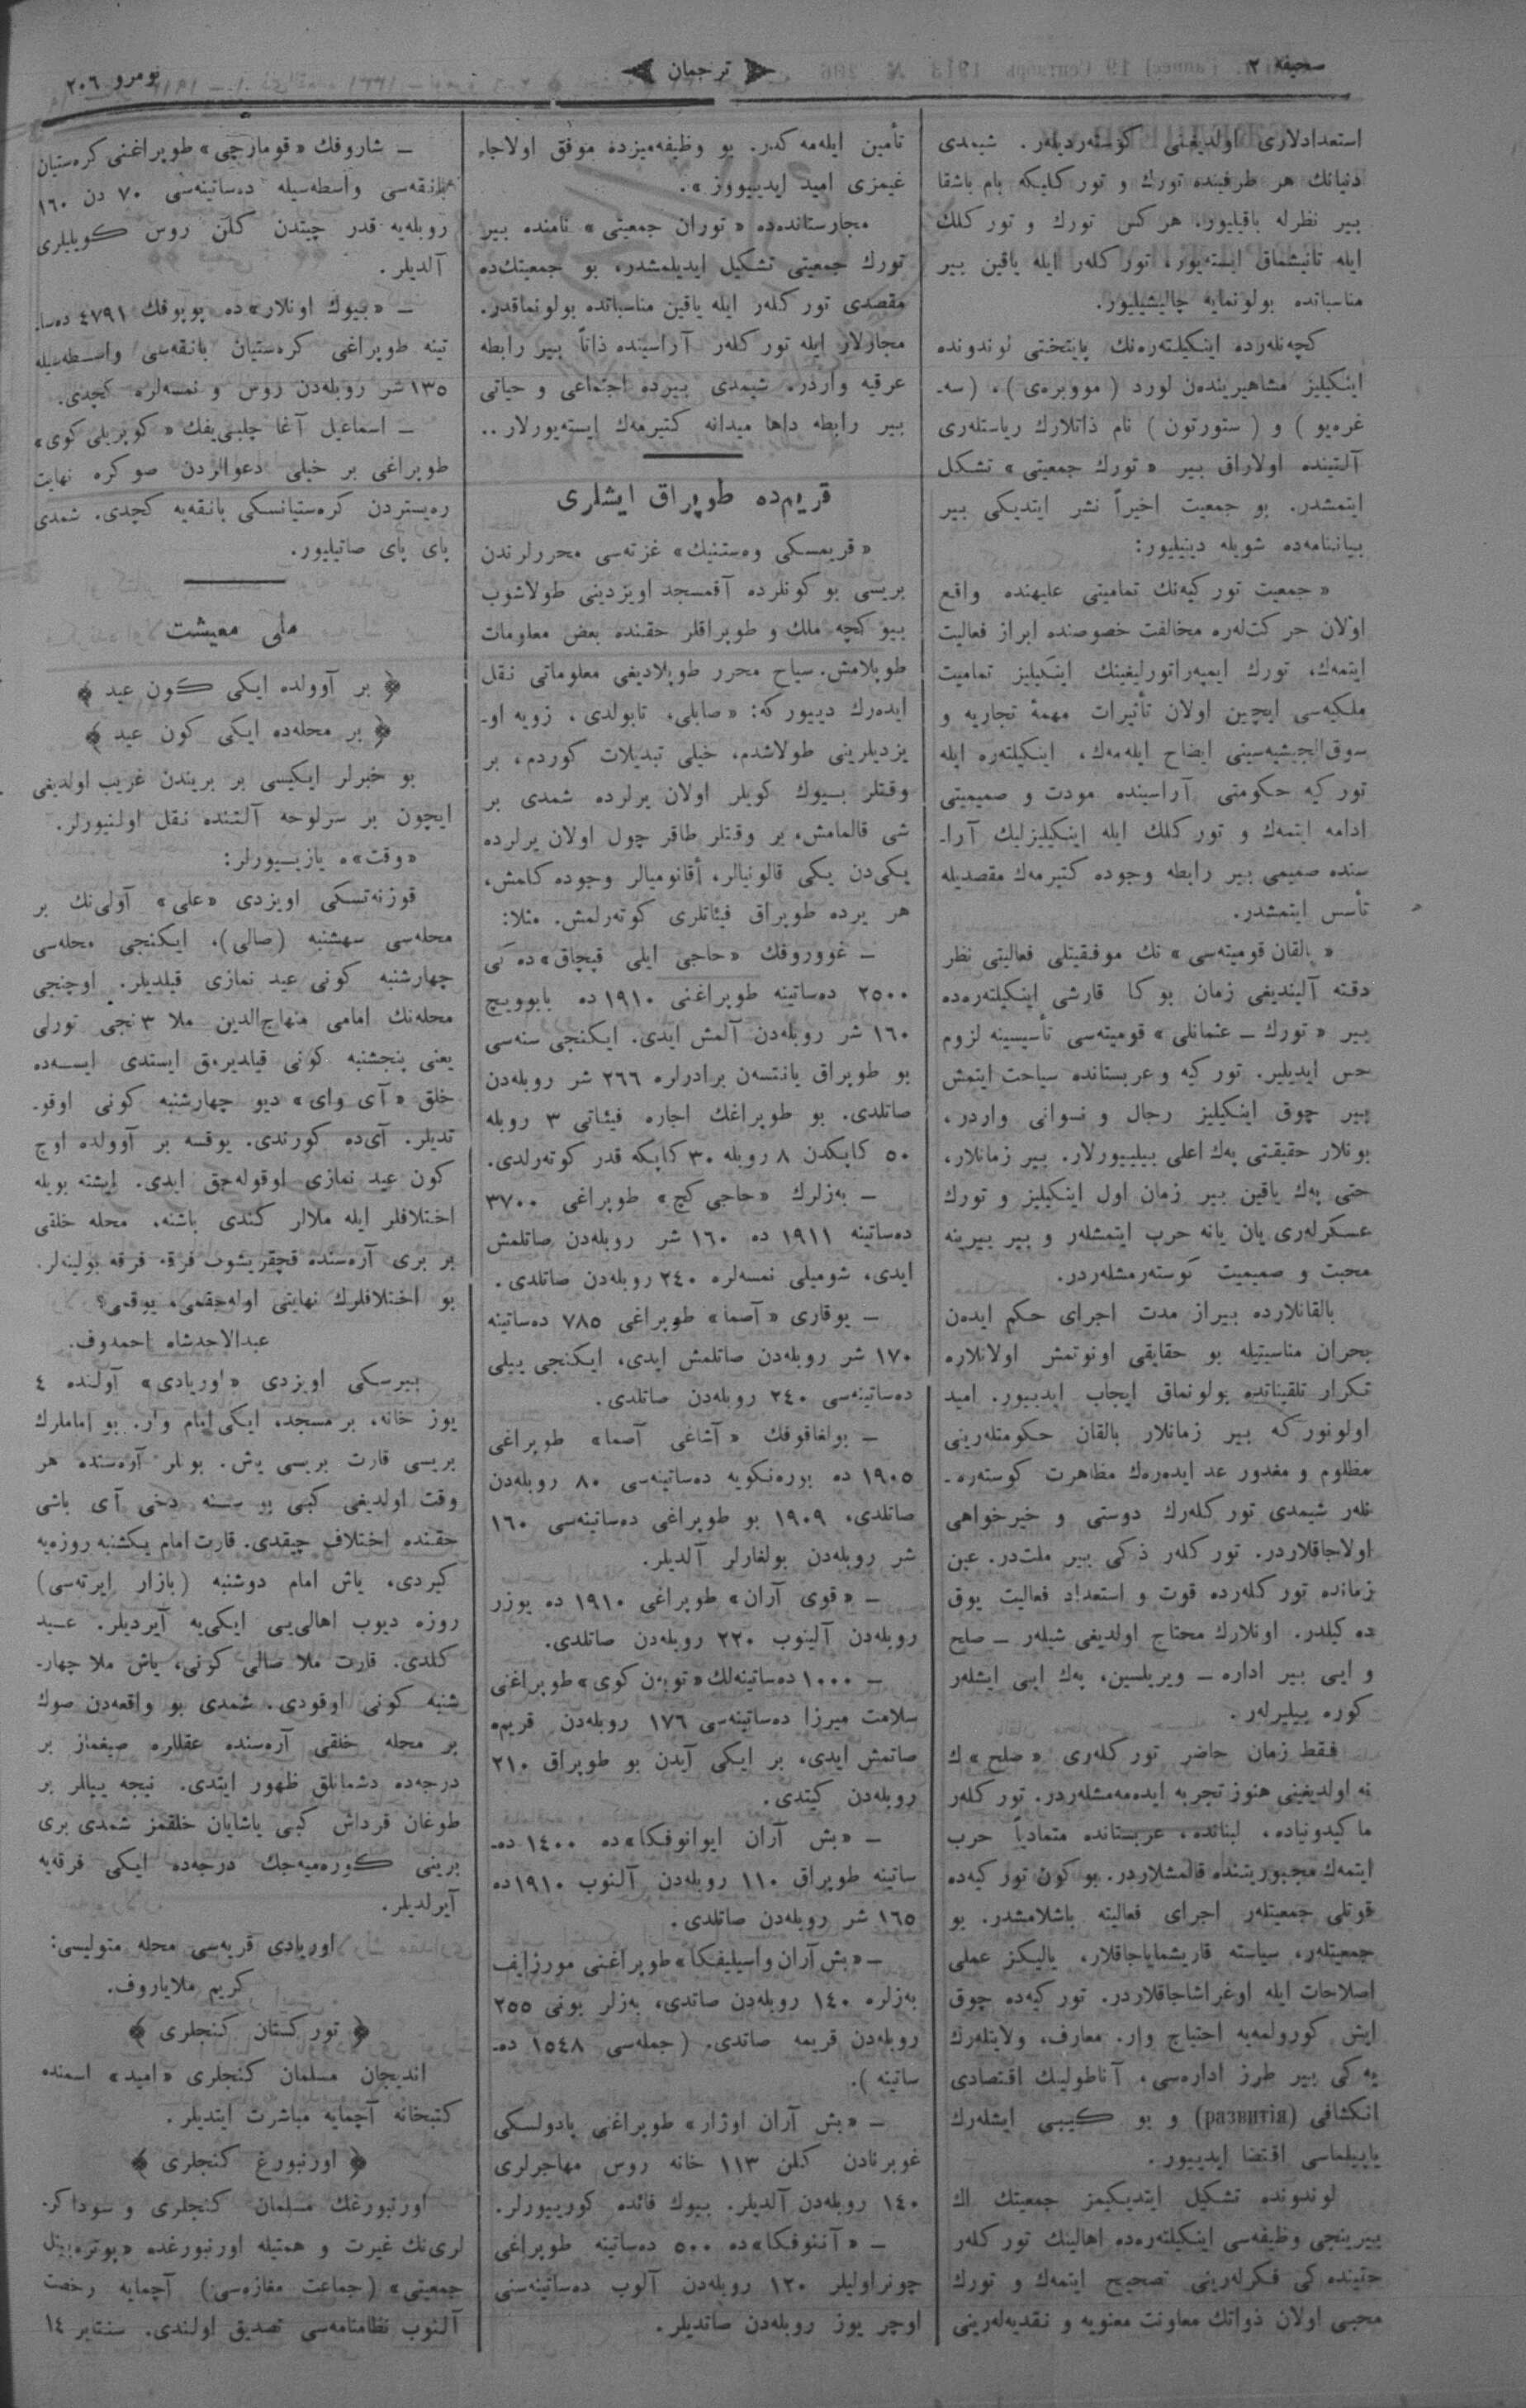 صحیفه ٢
ترجمان
نومرو ٢٠٦
استعدادلاری اولدیغینی کوسته‌ردیلەر. شیمدی
دنیانك هر طرفینده تورك و تورکلیکه بام باشقا
بیر نظرله باقیلیور. هرکس تورك و تورکلك
ایله تانیشماق ایسته‌یور، تورکلەر ایله یاقین بیر
مناسباتده بولونمایه چالیشیلیور.
کچەنلەرده اینکیلتەرەنك پایتختی لوندونده
اینکیلیز مشاهیریندەن لورد (موویره‌ی)، (سه‌ـ
غره‌یو) و (ستورتون) نام ذاتلارك ریاستلەری
آلتینده اولاراق بیر «تورك جمعیتی» تشکل
ایتمشدر. بو جمعیت اخیراً نشر ایتدیکی بیر
بیاننامه‌ده شویله دینیلیور:
«جمعیت تورکیه‌نك تمامیتی علیهنده واقع
اولان حرکت‌لەره مخالفت خصوصنده ابراز فعالیت
ایتمەك، تورك ایمپەراتورلیغینك اینکیلیز تمامیت
ملکیه‌سی ایچین اولان تأثیرات مهمهٔ تجاریه و
سوق‌الجیشیه‌سینی ایضاح ایلەمەك، اینکیلتەره ایله
تورکیه حکومتی آراسینده مودت و صمیمیتی
ادامه ایتمەك و تورکلك ایله اینکیلیزلیك آراـ
سنده صمیمی بیر رابطه وجوده کتیرمەك مقصدیله
تأسس ایتمشدر.
«بالقان قومیته‌سی» نك موفقیتلی فعالیتی نظر
دقته آلیندیغی زمان بوکا قارشی اینکیلتەره‌ده
بیر «تورك ــ عثمانلی» قومیته‌سی تأسیسینه لزوم
حس ایدیلیر. تورکیه و عربستانده سیاحت ایتمش
بیر چوق اینکیلیز رجال و نسوانی واردر،
بونلار حقیقتی پەك اعلی بیلییورلار. بیر زمانلار،
حتی پەك یاقین بیر زمان اول اینکیلیز و تورك
عسکرلەری یان یانه حرب ایتمشلەر و بیر بیرینه
محبت و صمیمیت کوستەرمشلەردر.
بالقانلارده بیراز مدت اجرای حکم ایدەن
بحران مناسبتیله بو حقایقی اونوتمش اولانلاره
تکرار تلقیناتده بولونماق ایجاب ایدییور. امید
اولونورکه بیر زمانلار بالقان حکومتلەرینی
مظلوم و مغدور عد ایدەرەك مظاهرت کوستەرەـ
نلەر شیمدی تورکلەرك دوستی و خیرخواهی
اولاجاقلاردر. تورکلەر ذکی بیر ملت‌در. عین
زمانده تورکلەرده قوت و استعداد فعالیت یوق
ده‌کیلدر. اونلارك محتاج اولدیغی شیلەر ــ صلح
و ایی بیر اداره ــ ویریلسین، پەك ایی ایشلەر
کوره بیلیرلەر.
فقط زمان حاضر تورکلەری «صلح»ك
نه اولدیغینی هنوز تجربه ایدەمەمشلەردر. تورکلەر
ماکیدونیاده، لبنانده، عربستانده متمادیاً حرب
ایتمەك مجبوریتنده قالمشلاردر. بو کون تورکیه‌ده
قوتلی جمعیتلەر اجرای فعالیته باشلامشدر. بو
جمعیتلەر، سیاسته قاریشمایاجاقلار، یالیکز عملی
اصلاحات ایله اوغراشاجاقلاردر. تورکیه‌ده چوق
ایش کورولمەیه احتیاج وار. معارف، ولایتلەرك
یەکی بیر طرز اداره‌سی، آناطولینك اقتصادی
انکشافی (развитія) و بو کیبی ایشلەرك
یاپیلماسی اقتضا ایدییور.
لوندونده تشکیل ایتدیکیمز جمعیتك اك
بیرینجی وظیفه‌سی اینکیلتەره‌ده اهالینك تورکلەر
حقینده کی فکرلەرینی تصحیح ایتمەك و تورك
محبی اولان ذواتك معاونت معنویه و نقدیه‌لەرینی
تأمین ایلەمەکدر. بو وظیفەمیزده موفق اولاجاـ
غیمزی امید ایدییورز».
مجارستانده‌ده «توران جمعیتی» نامنده بیر
تورك جمعیتی تشکیل ایدیلمشدر، بو جمعیتك‌ده
مقصدی تورکلەر ایله یاقین مناسباتده بولونماقدر.
مجارلار ایله تورکلەر آراسینده ذاتاً بیر رابطه
عرقیه واردر، شیمدی بیرده اجتماعی و حیاتی
بیر رابطه داها میدانه کتیرمەك ایسته‌یورلار..
قریم‌ده طوپراق ایشلری
«قریمسکی وەستنیك» غزته‌سی محررلرندن
بریسی بو کونلرده آقمسجد اویزدینی طولاشوب
بیوکچه ملك و طوپراقلر حقنده بعض معلومات
طوپلامش. سیاح محرر طوپلادیغی معلوماتی نقل
ایدەرك دییورکه: «صابلی، تابولدی، زویه اوـ
یزدیلرینی طولاشدم، خیلی تبدیلات کوردم، بر
وقتلر بیوك کویلر اولان یرلرده شمدی بر
شی قالمامش، بر وقتلر طاقر چول اولان یرلرده
یکی‌دن یکی قالونیالر، أقانومیالر وجوده کلمش،
هر یرده طوپراق فیئاتلری کوتەرلمش. مثلا:
ــ غووروفك «حاجی ایلی قپچاق»ده کی
٢٥٠٠ دەساتینه طوپراغنی ١٩١٠ ده بابوویچ
١٦٠ شر روبلەدن آلمش ایدی. ایکنجی سنه‌سی
بو طوپراق یانتسەن برادرلره ٢٦٦ شر روبلەدن
صاتلدی. بو طوپراغك اجاره فیئاتی ٣ روبله
٥٠ کاپکدن ٨ روبله ٣٠ کاپکه قدر کوتەرلدی.
ــ بەزلرك «حاجی کچ» طوپراغی ٣٧٠٠
دەساتینه ١٩١١ ده ١٦٠ شر روبلەدن صاتلمش
ایدی، شومیلی نمسەلره ٢٤٠ روبلەدن صاتلدی.
ــ یوقاری «آصما» طوپراغی ٧٨٥ دەساتینه
١٧٠ شر روبلەدن صاتلمش ایدی، ایکنجی ییلی
دەساتینه‌سی ٢٤٠ روبلەدن صاتلدی.
ــ بولغاقوفك «آشاغی آصما» طوپراغی
١٩٠٥ ده بورەنکویه دەساتینه‌سی ٨٠ روبلەدن
صاتلدی، ١٩٠٩ بو طوپراغی دەساتینه‌سی ١٦٠
شر روبلەدن بولغارلر آلدیلر.
ــ «قوی آران» طوپراغی ١٩١٠ ده یوزر
روبلەدن آلینوب ٢٢٠ روبلەدن صاتلدی.
ــ ١٠٠٠ دەساتینەلك «توبەن کوی» طوپراغنی
سلامت میرزا دەساتینه‌سی ١٧٦ روبلەدن قریمه
صاتمش ایدی، بر ایکی آیدن بو طوپراق ٢١٠
روبلەدن کیتدی.
ــ «بش آران ایوانوفکا»ده ١٤٠٠ دەـ
ساتینه طوپراق ١١٠ روبلەدن آلنوب ١٩١٠ده
١٦٥ شر روبلەدن صاتلدی.
ــ «بش آران واسیلیفکا» طوپراغنی مورزایف
بەزلره ١٤٠ روبلەدن صاتدی، بەزلر بونی ٢٥٥
روبلەدن قریمه صاتدی. (جمله‌سی ١٥٤٨ دەـ
ساتینه).
ــ «بش آران اوزار» طوپراغنی پادولسکی
غوبرنادن کلن ١١٣ خانه روس مهاجرلری
١٤٠ روبلەدن آلدیلر. بیوك فائده کورییورلر.
ــ «آننوفکا»ده ٥٠٠ دەساتینه طوپراغی
چونراولیلر ١٢٠ روبلەدن آلوب دەساتینه‌سنی
اوچر یوز روبلەدن صاتدیلر.
ــ شاروفك «قومارچی» طوپراغنی کرەستیان
بانقه‌سی واسطه‌سیله دەساتینه‌سی ٧٠ دن ١٦٠
روبلەیه قدر چیتدن کلن روس کویلیلری
آلدیلر.
ــ «بیوك اونلار» ده پوپوفك ٤٧٩١ دەساـ
تینه طوپراغی کرەستیان بانقه‌سی واسطه‌سیله
١٣٥ شر روبلەدن روس و نمسەلره کچدی.
ــ اسماعیل آغا چلبی‌یفك «کوپرلی کوی»
طوپراغی بر خیلی دعوالردن صوکره نهایت
رەیستردن کرەستیانسکی بانقه‌یه کچدی. شمدی
پای پای صاتیلیور.
ملی معیشت
﴿ بر آوولده ایکی کون عید ﴾
﴿ بر محله‌ده ایکی کون عید ﴾
بو خبرلر ایکیسی بر بریندن غریب اولدیغی
ایچون بر سرلوحه آلتنده نقل اولنیورلر.
«وقت»ه یازییورلر:
قوزنەتسکی اویزدی «علی» آولی‌نك بر
محله‌سی سه‌شنبه (صالی)، ایکنجی محله‌سی
چهارشنبه کونی عید نمازی قیلدیلر. اوچنجی
محله‌نك امامی منهاج‌الدین ملا ٣نجی تورلی
یعنی پنجشنبه کونی قیلدیرمق ایستدی ایسه‌ده
خلق «آی وای» دیو چهارشنبه کونی اوقوـ
تدیلر. آی‌ده کورندی. یوقسه بر آوولده اوچ
کون عید نمازی اوقوله‌جق ایدی. ایشته بویله
اختلافلر ایله ملالر کندی باشنه، محله خلقی
بر بری آره‌سنده قچقریشوب فرقه فرقه بولینەلر.
بو اختلافلرك نهایتی اوله‌جقمی، یوقمی؟
عبدالاحدشاه احمدوف.
بیرسکی اویزدی «اوریادی» آولنده ٤
یوز خانه، بر مسجد، ایکی امام وار. بو اماملرك
بریسی قارت بریسی یاش. بونلر آره‌سنده هر
وقت اولدیغی کبی بو سنه دخی آی باشی
حقنده اختلاف چیقدی. قارت امام یکشنبه روزه‌یه
کیردی، یاش امام دوشنبه (بازار ایرته‌سی)
روزه دیوب اهالی‌یی ایکی‌یه آیردیلر. عید
کلدی. قارت ملا صالی کونی، یاش ملا چهارـ
شنبه کونی اوقودی. شمدی بو واقعه‌دن صوك
بر محله خلقی آره‌سنده عقللره صیغماز بر
درجه‌ده دشمانلق ظهور ایتدی. نیجه ییللر بر
طوغان قرداش کبی یاشایان خلقمز شمدی بری
برینی کوره‌میه‌جك درجه‌ده ایکی فرقه‌یه
آیرلدیلر.
اوریادی قریه‌سی محله متولیسی:
کریم ملایاروف.
﴿ تورکستان کنجلری ﴾
اندیجان مسلمان کنجلری «امید» اسمنده
کتبخانه آچمایه مباشرت ایتدیلر.
﴿ اورنبورغ کنجلری ﴾
اورنبورغك مسلمان کنجلری و سوداکرـ
لری‌نك غیرت و همتیله اورنبورغده «پوتره‌بیتل
جمعیتی» (جماعت مغازه‌سی) آچمایه رخصت
آلنوب نظامنامه‌سی تصدیق اولندی. سنتابر ١٤